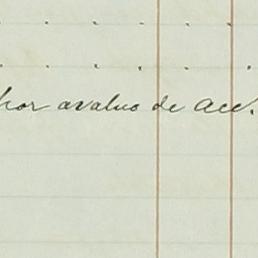 por avaluo de acc.